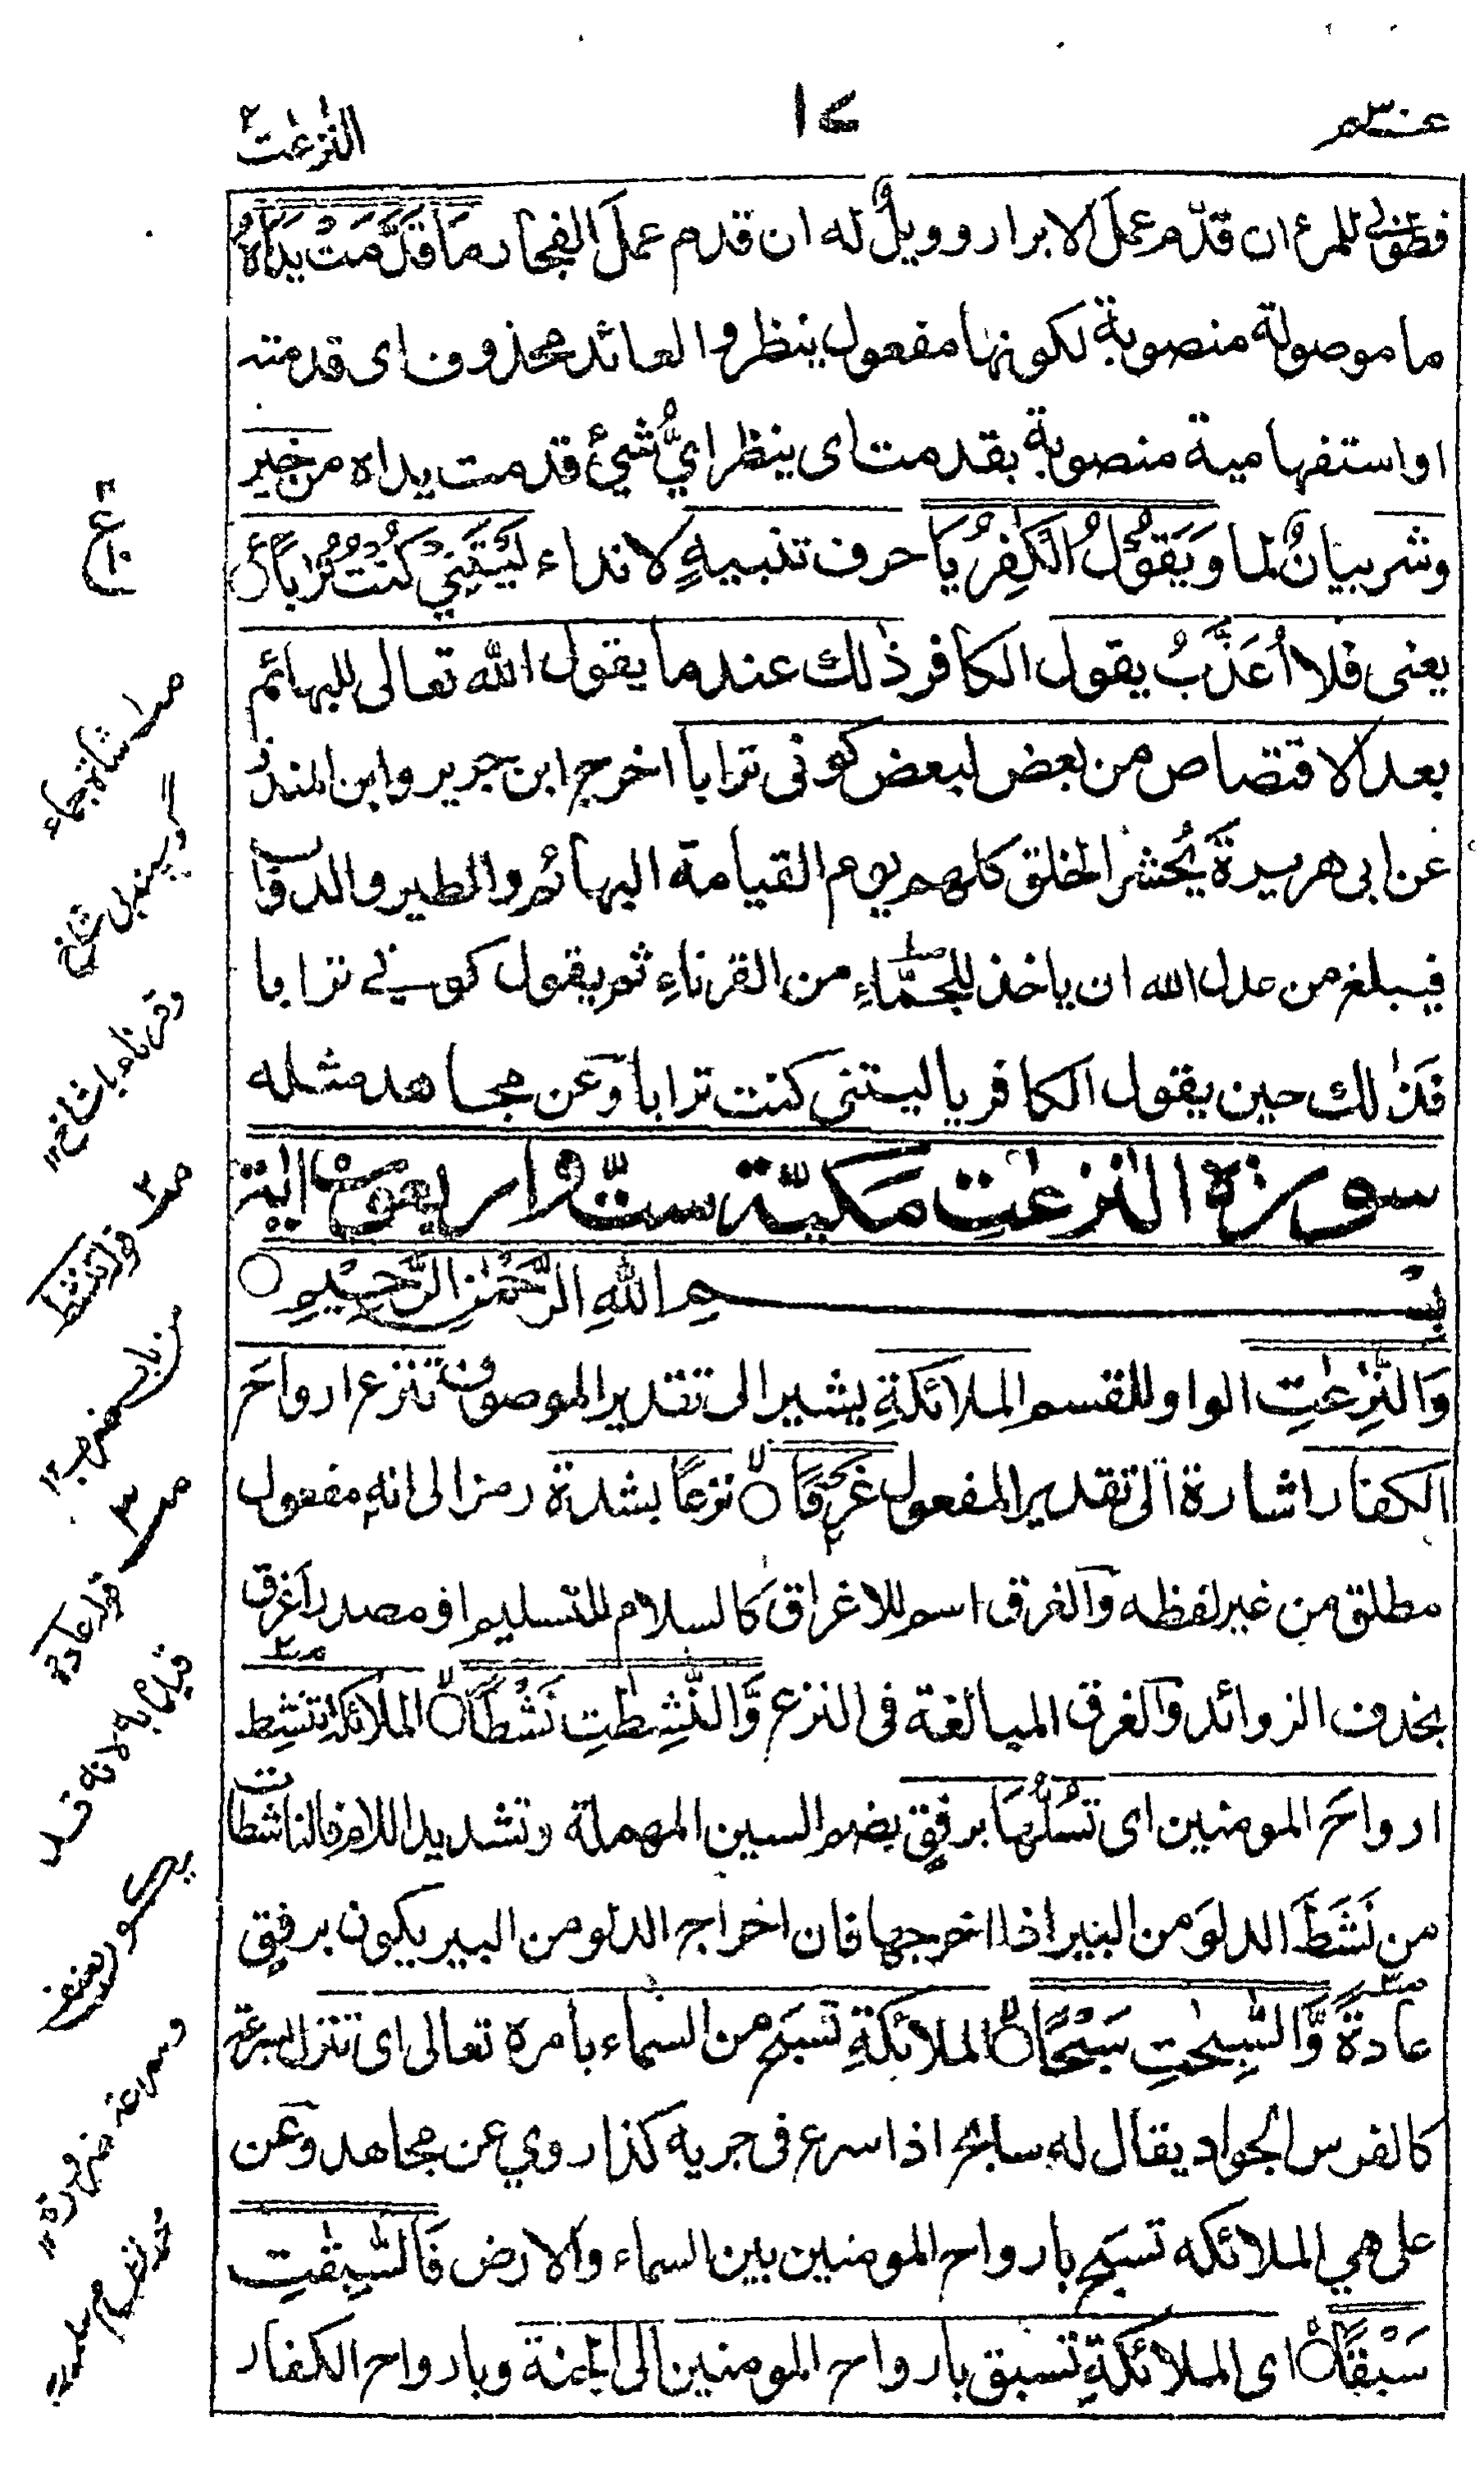 عم ٣٠
١٧
النزعت
فطوبٰى للمرء ان قدّم عملَ الابرار وويلٌ له ان قدم عملَ الفجار مَا قَدَّمَتْ يَدٰهُ
ما موصولة منصوبة لكونها مفعول ينظر والعائد محذوف اى قدمته
او استفهامية منصوبة بقدمت اى ينظر ايُّ شيئ قدمت يداه من خير
وشر بيانٌ لما وَيَقُوْلُ الْكٰفِرُ يَا حرف تنبيهٍ لا نداء لَيْتَنِيْ كُنْتُ تُرَاباً
يعنى فلا اُعَذَّبُ يقول الكافر ذٰلك عند ما يقول الله تعالى للبهائم
بعد الاقتصاص من بعض لبعض كونى ترابا اخرج ابن جرير وابن المنذر
عن ابى هريرةَ يُحشر الخلق كلهم يوم القيامة البهائم والطير والدواب
فيبلغ من عدل الله ان ياخذ للجمَّاءِ من القرناءِ ثم يقول كونى ترابا
فذٰلك حين يقول الكافر يا ليتنى كنت ترابا وعن مجاهد مثله
سورة النزعٰت مكيّة ستّ واربعون اٰية
بِسْمِ اللهِ الرَّحْمٰنِ الرَّحِيْمِ
وَالنّٰزِعٰتِ الواو للقسم الملائكةِ يشير الى تقدير الموصوف تنزع ارواحَ
الكفار اشارة الى تقدير المفعول غَرْقًا نزعًا بشدة رمز الى انه مفعول
مطلق من غير لفظه والغرق اسم للاغراق كالسلام للتسليم او مصدر اَغرق
بحذف الزوائد والغرق المبالغة فى النزع وَّالنّٰشِطٰتِ نَشْطًا الملائكةِ تنشِط
ارواحَ المومنين اى تَسُلُّهَا برفقٍ بضم السين المهملة وتشديد اللام فالناشطات
من نَشَطَ الدلوَ من البير اذا اخرجها فان اخراج الدلو من البير يكون برفقٍ
عادةً وَّالسّٰبِحٰتِ سَبْحًا الملائكةِ تسبَح من السماء بامره تعالى اى تنزل بسرعة
كالفرس الجواد يقال له سابح اذا سرع فى جريه كذا روي عن مجاهد وعن
على هي الملائكه تسبَح بارواح المومنين بين السماء والارض فَالسّٰبِقٰتِ
سَبْقًا اى الملائكةِ تسبق بارواح المومنين الى الجنة وبارواح الكفار
ع
صـ١ شاة جماء
گوسپند بى شاخ
وقرناء با شاخ ١٢
صـ٢ قوله تنشط
من باب ضرب ١٢
صـ٣ قوله عادة